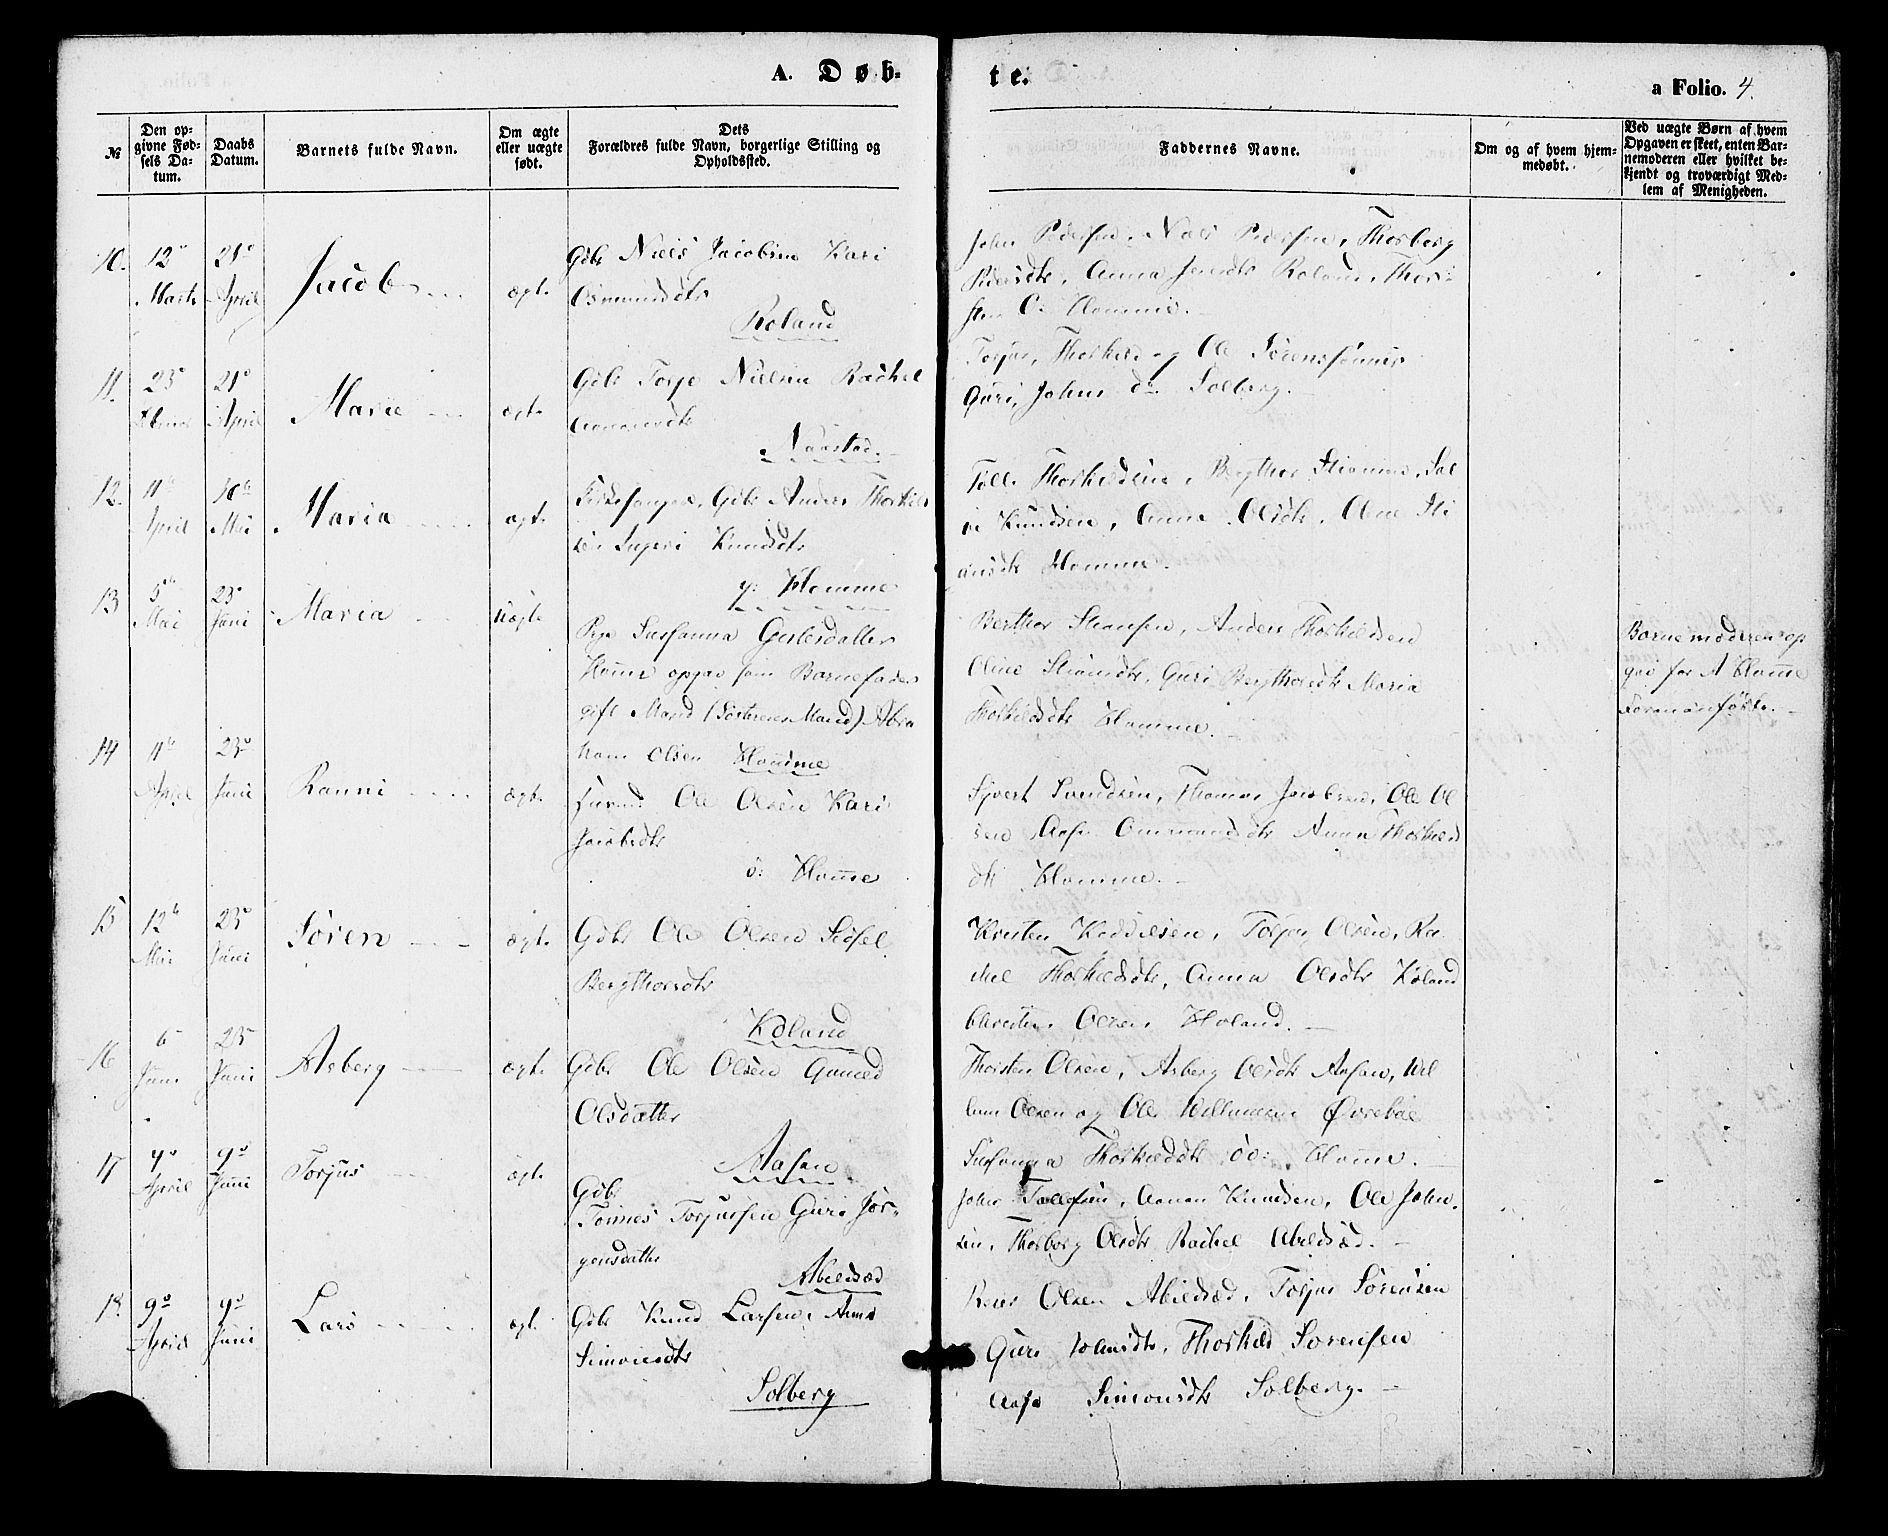 A. Døb-
te.
a Folio. 4.
№
Den op-
givne Fød-
sels Da-
tum.
Daabs
Datum.
Barnets fulde Navn.
Om ægte
eller uægte
født.
Dets
Forældres fulde Navn, borgerlige Stilling og
Opholdssted.
Faddernes Navne.
Om og af hvem hjem-
medøbt.
Ved uægte Børn af hvem
Opgaven er skeet, enten Bar-
nemoderen eller hvilket be-
kjendt og troværdigt Med-
lem af Menigheden.
10.
12
Marts
21
April
Jacob
ægte
Gbr Niels Jacobsen Kari
Osmundsdtr
Roland
John Pedersen, Niels Pedersen, Thorborg
Pedersdtr, Anna Jensdtr Roland, Thor-
sten O. Homme.
11.
25
21
April
Marie
ægte
Gbr Torje Nielsen Rachel
Aanensdtr
Naastad.
Torjus, Thorkild og Ole Sørenssønner
Guri Johns dtr Solberg.
12.
11
April
16
Mai
Maria
ægte
Kirkesanger, Gbr Anders Thorkild-
sen Ingeri Knudsdtr
y: Homme
Thorkildsen, Bergthor
Knudsen, Anna Olsdtr, Oline
Homme.
13
5
Mai
23
Juni
Maria
Uægte
Pige Susanna
Homme opgav som Barnefader
gift Mand (Søsterens Mand) Abra
ham Olsen Homme
Berthor Stiansen, Anders Thorkildsen
Oline Stiansdtr, Guri Bergthorsdtr Maria
Thorkildsdtr Homme.
Barnemoderen op
gav for A Homme
14
11
April
23
Juni
Ranni
ægte
Ole Olsen Kari
Jacobsdtr
ö: Homme
Sjvert Svendsen, Thomas Jacobsen, Ole Ol
sen Aase Ommundsdtr Anna Thorkilds
dtr Homme.
15
12
Mai
23
Juni
Sören
ægte
Gbr Ole Olsen Sidsel
Bergthorsdtr
Køland
Kristen Keddelsen, Torjus Olsen, Ra-
chel Thorkildsdtr, Anna Olsdtr Køland
Olsen Holand.
16
6
Juni
23
Juni
Asberg
ægte
Gbr Ole Olsen Gunild
Olsdatter
Aasen
Thorsten Olsen, Asberg Olsdtr Aasen, Wil
lum Olsen og Ole Willumsen Øvrebøe
Susanna Thorkildsdtr Homme.
17
4
April
9
Juni
Torjus
ægte
Gbr
Tönnes Torjussen Guri Jör-
gensdatter
Abildsæd
John Tallefsen, Aanen Knudsen, Ole John-
sen, Thorborg Olsdtr Rachel Abildsæd.
18.
9
April
9
Juni
Lars
ægt.
Gbr Knud Larsen, Anna
Simonsdtr
Solberg
Reier Olsen Abildsæd, Torjus Sörensen
Guri Johnsdtr, Thorkild Sörensen
Aase Simonsdtr Solberg.